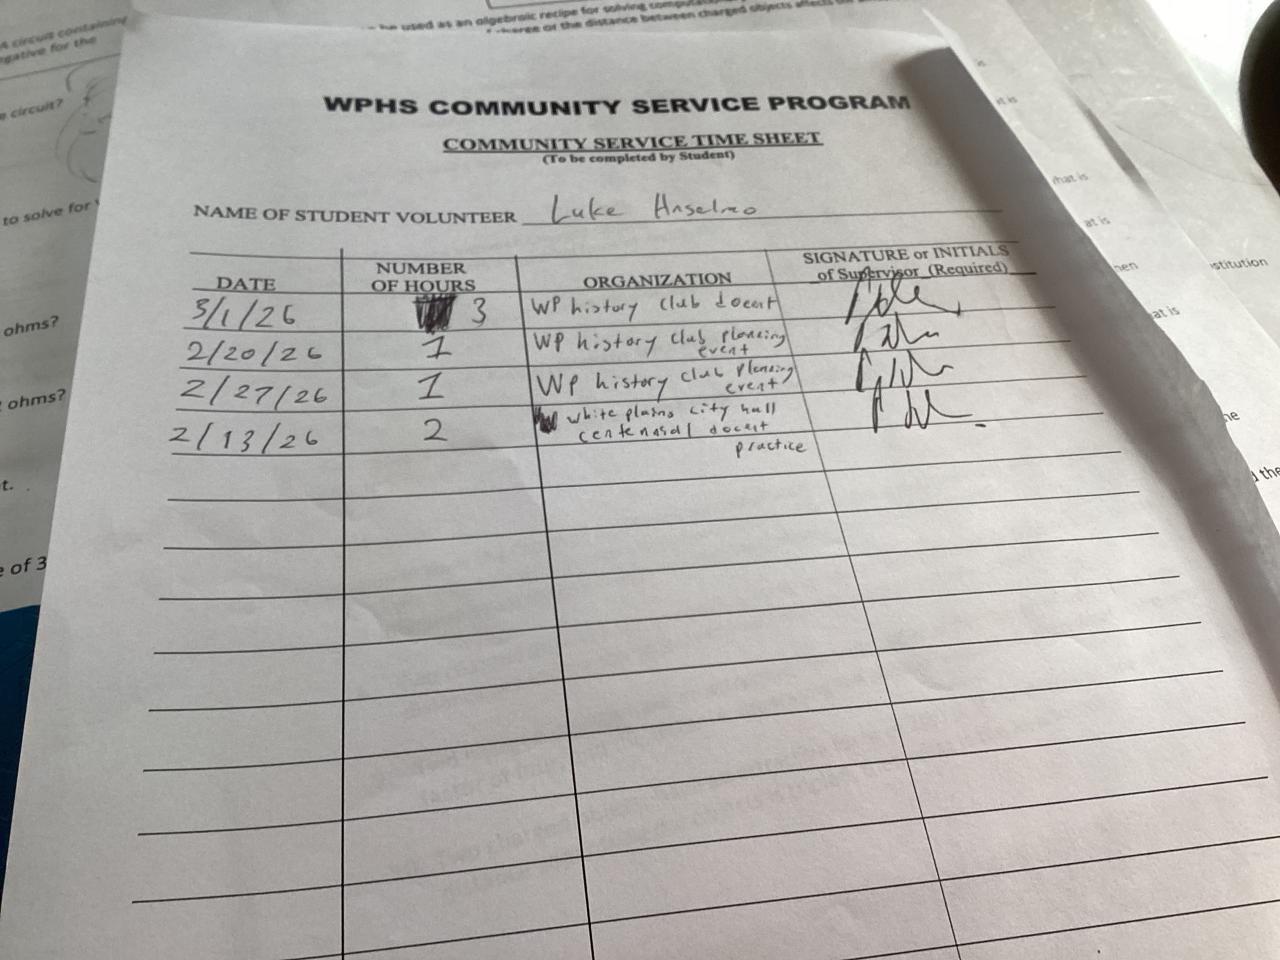 A circuit containing
gative for the
e circuit?
to solve for
ohms?
ohms?
t.
e of 3
be used as an algebraic recipe for solving
or the distance between charged objects affects the
WPHS COMMUNITY SERVICE PROGRAM
COMMUNITY SERVICE TIME SHEET
(To be completed by Student)
NAME OF STUDENT VOLUNTEER Luke Anselmo
DATE NUMBER OF HOURS ORGANIZATION SIGNATURE or INITIALS of Supervisor (Required)
3/1/26 3 WP history club docent
2/20/26 1 WP history club planning event
2/27/26 1 WP history club planning event
2/13/26 2 white plains city hall centennial docent practice
what is
at is
hen
stitution
at is
he
d the